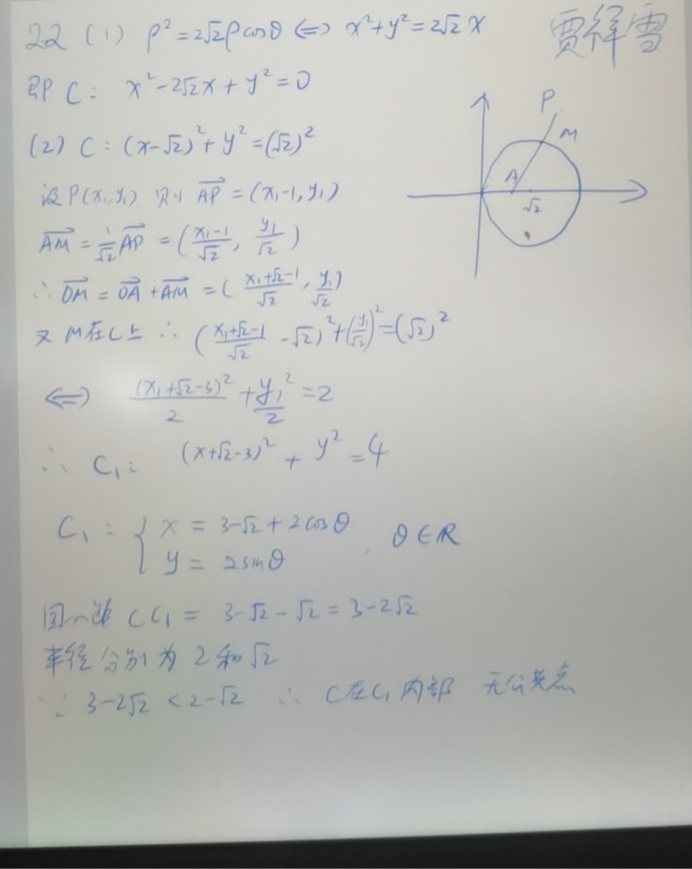 22 (1) ρ²=2√2ρcosθ ⇔ x²+y²=2√2x
贾祥雪
即 C: x²-2√2x+y²=0
(2) C:(x-√2)²+y²=(√2)²
设P(x₁,y₁) 则 AP→=(x₁-1,y₁)
AM→=1/√2 AP→=((x₁-1)/√2, y₁/√2)
∴ OM→=OA→+AM→=((x₁+√2-1)/√2, y₁/√2)
又M在C上 ∴ ((x₁+√2-1)/√2-√2)²+(y₁/√2)²=(√2)²
⇔ (x₁+√2-3)²/2+y₁²/2=2
∴ C₁: (x+√2-3)²+y²=4
C₁: { x=3-√2+2cosθ
y=2sinθ , θ∈R
圆心距 CC₁=3-√2-√2=3-2√2
半径分别为2和√2
∵ 3-2√2<2-√2 ∴ C在C₁内部 无公共点
P
M
A
√2